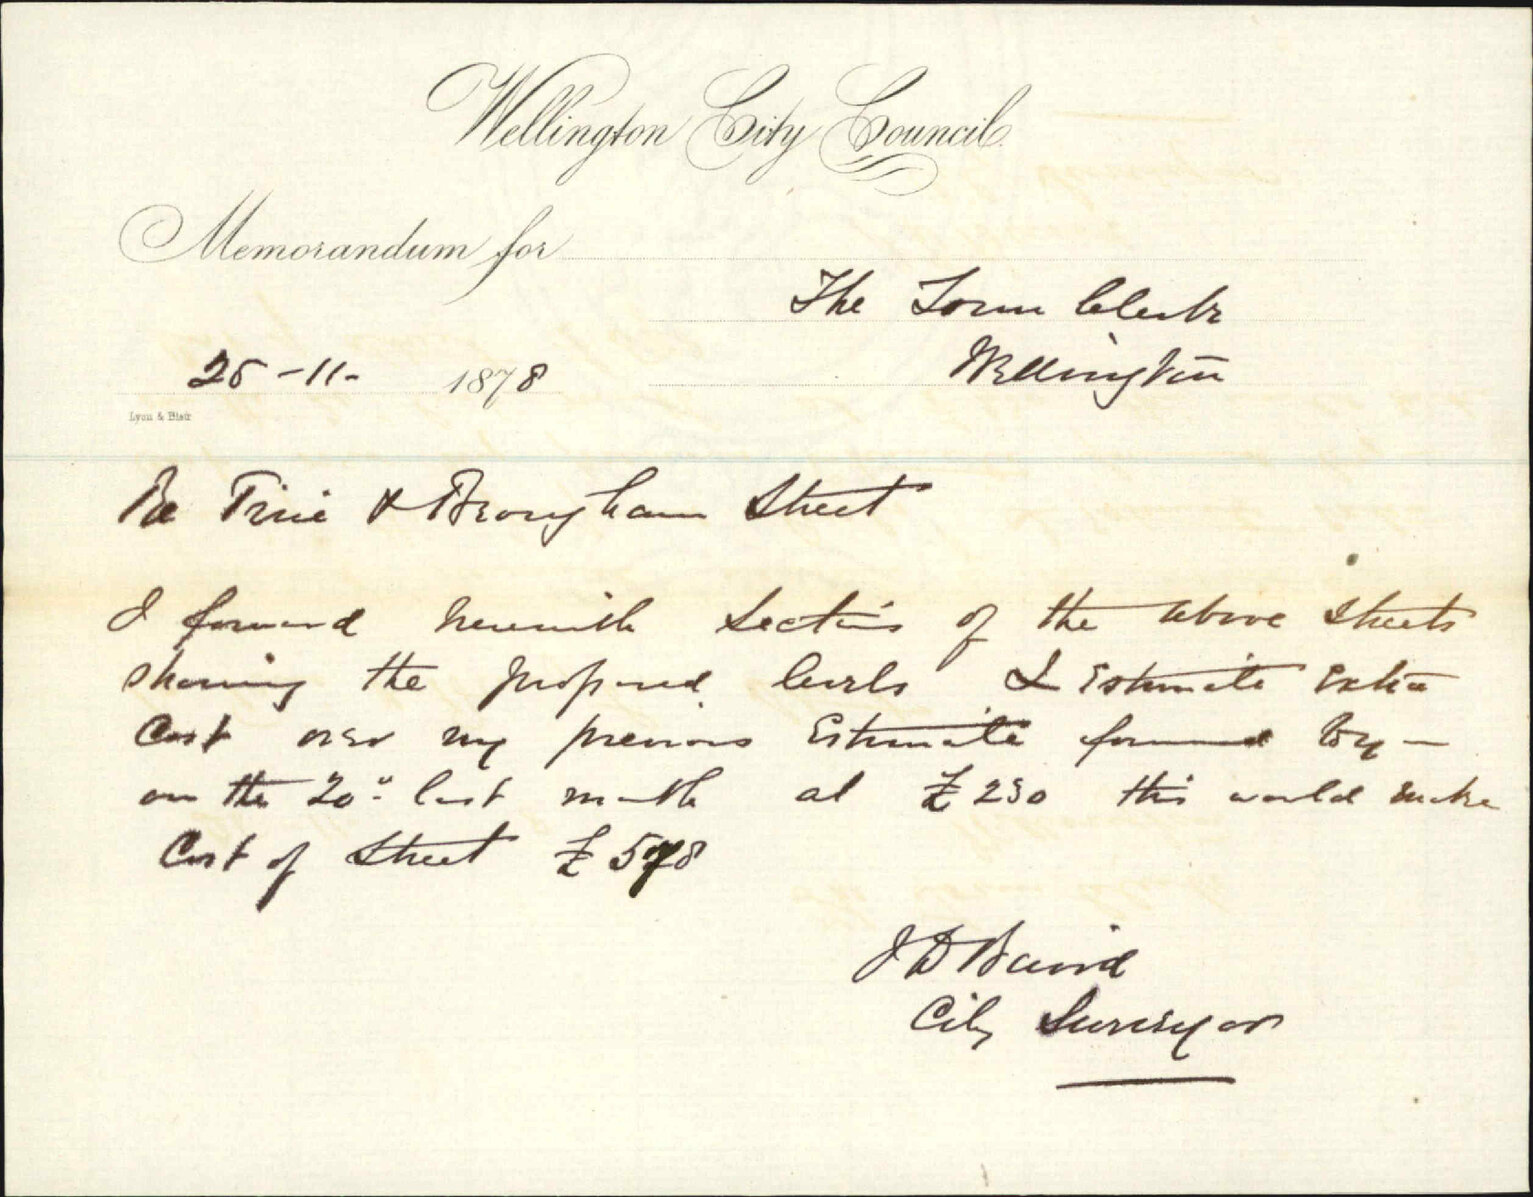 Wellington City Council.
Memorandum for
The Town Clerk
Wellington
25-11- 1878
Lyon & Blair
Re Pirie & Brougham Street
I forward herewith Sections of the above Streets
showing the proposed levels I Estimate Extra
Cost over my previous Estimate forward by —
on the 20" last month at £230 this would make
Cost of Street £578
J D Baird
City Surveyor